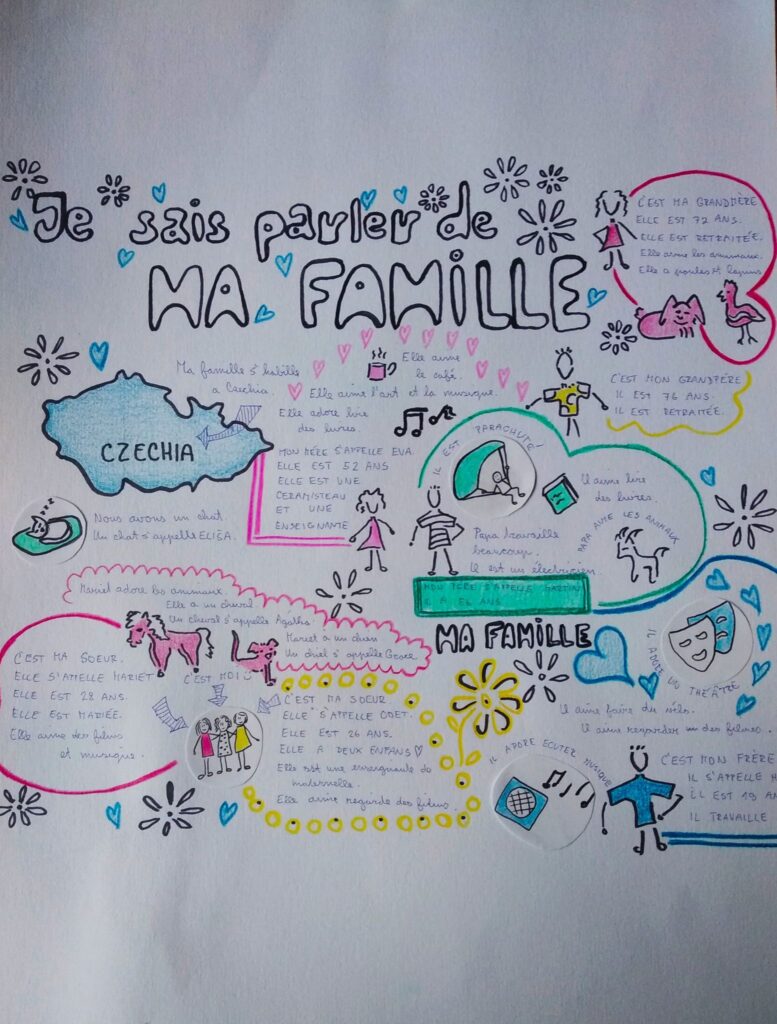 Je sais parler de
MA FAMILLE
C'EST MA GRANDMÈRE
ELLE EST 72 ANS.
ELLE EST RETRAITÉE.
Elle aime les animaux.
Elle a poules et lapins
C'EST MON GRANDPÈRE
IL EST 76 ANS.
IL EST RETRAITÉE.
Ma famille s'habille
a Czechia.
CZECHIA
Elle aime
le café.
Elle aime l'art et la musique.
Elle adore lire
des livres.
MON MÈRE S'APPELLE EVA
ELLE EST 52 ANS
ELLE EST UNE
CERAMISTEAU
ET UNE
ENSEIGNAME
Nous avons un chat
Un chat s'appelle ELIŠA.
IL EST PARACHUTÉ
Il aime lire
des livres.
PAPA AIME LES ANIMAUX
Papa travaille
beaucoup.
Il est un électricien
MON PÈRE S'APPELLE MARTIN
IL A 56 ANS
MA FAMILLE
Mariet adore les animaux.
Elle a un cheval.
Un cheval s'appelle Agatha.
Mariet a un chien
Un chiel s'appelle
C'EST MA SOEUR.
ELLE S'APPELLE MARIET
ELLE EST 28 ANS.
ELLE EST MARIÉE.
Elle aime des films
et musique.
C'EST MOI
C'EST MA SOEUR
ELLE S'APPELLE ODET.
ELLE EST 26 ANS.
ELLE A DEUX ENFANS
Elle est une enseignante de
maternelle.
Elle aime regarde des films.
IL ADORE UN THÉATRE
Il aime faire du vélo.
Il aime regarder un des filmes.
IL ADORE ECUTER MUSIQUE
C'EST MON FRÈRE
IL S'APPELLE
IL EST 19 AN
IL TRAVAILLE